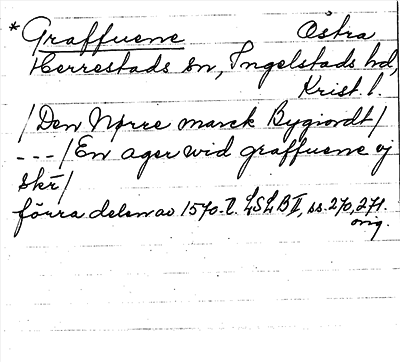 *Graffuene Östra
Herrestads sn, Ingelstads hd,
Krist. l.
/Den Nørre marck Bygiordt/
---/En ager wid graffuene vj
Skr/
förra delen av 1570-t. LSLB II, ss. 270, 271.
orig.